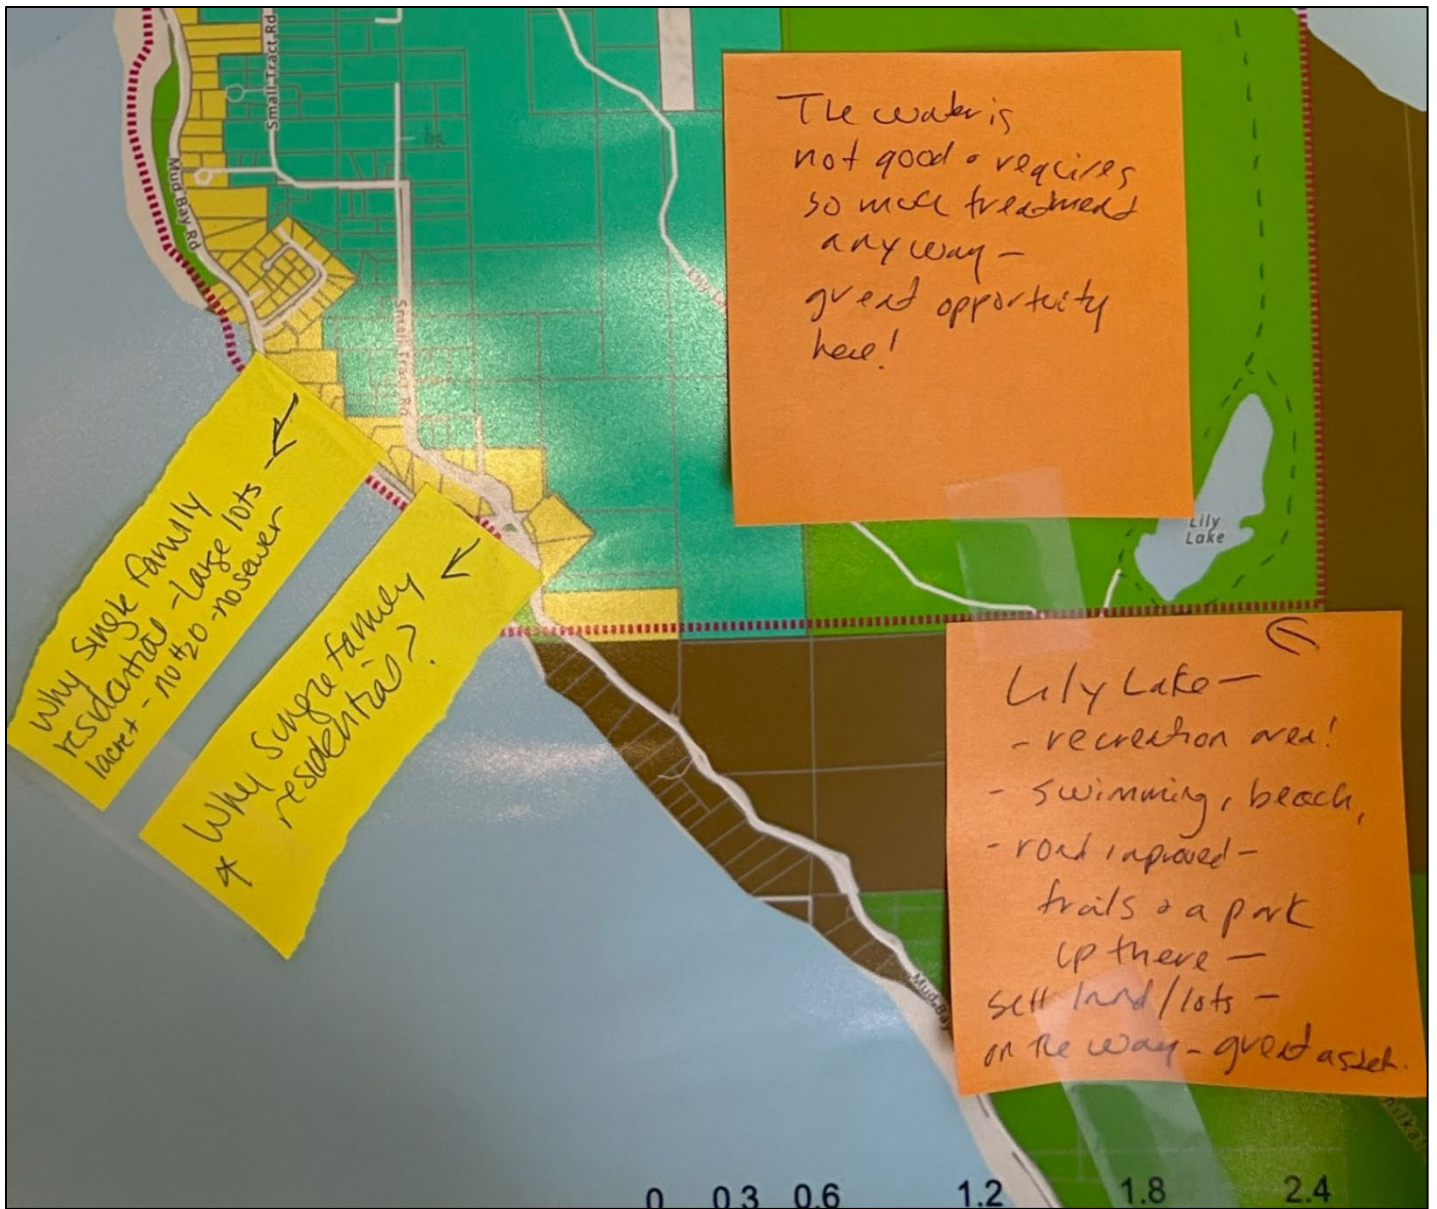 Small Tract Rd
Mud Bay Rd
The water is
not good & requires
so much treatment
anyway -
great opportunity
here!
Lily La
Small Tract Rd
Lily
Lake
Why Single Family
residential - large lots -
1acre+ - no H2O - no sewer
* Why Single family
residential?
Lily Lake -
- recreation area!
- swimming, beach,
- road improved -
trails & a park
up there -
sell land/lots -
on the way - great asset.
Mud Bay
0 0.3 0.6 1.2 1.8 2.4